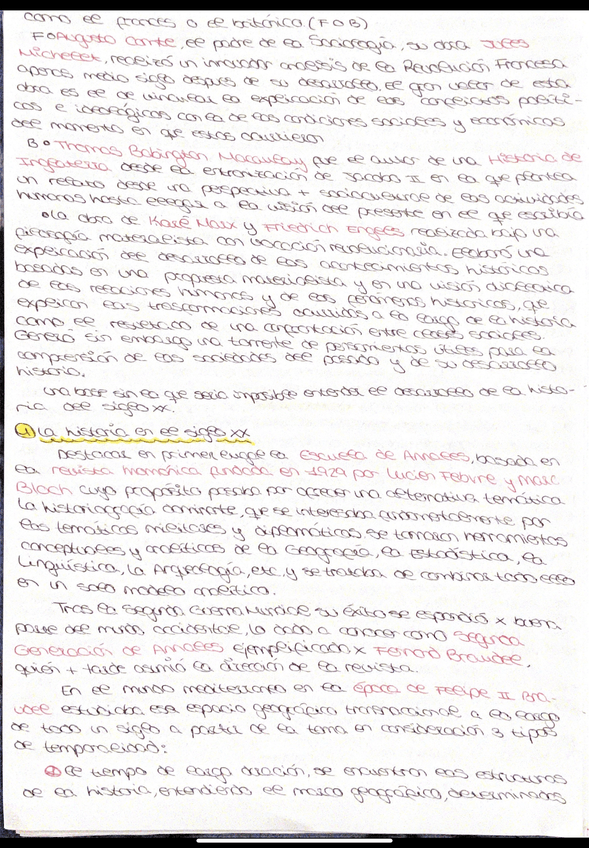 como el francés o el británico. (F O B)
F O Augusto Comte, el padre de la Sociología, su obra Jules
Michelet, realizó un innovador análisis de la Revolución Francesa
apenas medio siglo después de su desarrollo, el gran valor de esta
obra es el de vincular la explicación de los conceptos políti-
cos e ideológicos con la de las condiciones sociales y económicas
del momento en que estos ocurrieron
B • Thomas Babington Macaulay fue el autor de una Historia de
Inglaterra desde la entronización de Jacobo II en la que plantea
un relato desde una perspectiva + sociocultural de las actividades
humanas hasta llegar a la visión del presente en el que escribía
• La obra de Karl Marx y Friedrich Engels realizada bajo una
filosofía materialista con vocación revolucionaria. Elaboró una
explicación del desarrollo de los acontecimientos históricos
basados en una propuesta materialista y en una visión dialéctica
de las relaciones humanas y de los fenómenos históricos, que
explican las trasformaciones ocurridas a lo largo de la historia
como el resultado de una confrontación entre clases sociales.
Generó sin embargo una torrente de pensamientos útiles para la
comprensión de las sociedades del pasado y de su desarrollo
histórico.
Una base sin la que sería imposible entender el desarrollo de la histo-
ria del siglo XX.
4 La historia en el siglo XX
Destacar en primer lugar la Escuela de Annales, basada en
la revista homónima fundada en 1929 por Lucien Febvre y Marc
Bloch cuyo propósito pasaba por ofrecer una alternativa temática
la historiografía dominante, que se interesaba fundamentalmente por
las temáticas militares y diplomáticas, se tomaron herramientas
conceptuales y analíticas de la Geografía, la Estadística, la
Lingüística, la Arqueología, etc, y se trataba de combinar todo ello
en un solo modelo analítico.
Tras la Segunda Guerra Mundial su éxito se expandió x buena
parte del mundo occidental, lo dado a conocer como Segunda
Generación de Annales ejemplificado x Fernand Braudel,
quién + tarde asumió la dirección de la revista.
En el mundo mediterraneo en la época de Felipe II Bra-
udel estudiaba ese espacio geográfico transnacional a lo largo
de todo un siglo a partir de la toma en consideración 3 tipos
de temporalidad:
El tiempo de larga duración, se encuentran las estructuras
de la historia, entendiendo el marco geográfico, determinados